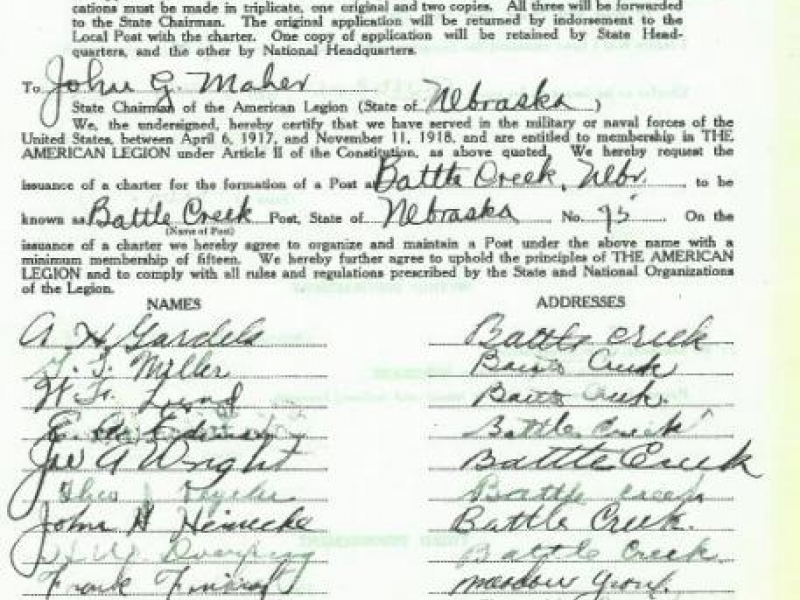 cations must be made in triplicate, one original and two copies. All three will be forwarded
to the State Chairman. The original application will be returned by indorsement to the
Local Post with the charter. One copy of application will be retained by State Head-
quarters, and the other by National Headquarters.
To John G. Maher
State Chairman of the American Legion (State of Nebraska)
We, the undersigned, hereby certify that we have served in the military or naval forces of the
United States, between April 6, 1917, and November 11, 1918, and are entitled to membership in THE
AMERICAN LEGION under Article II of the Constitution, as above quoted. We hereby request the
issuance of a charter for the formation of a Post at Battle Creek, Nebr. to be
known as Battle Creek Post, State of Nebraska No. 95 On the
(Name of Post)
issuance of a charter we hereby agree to organize and maintain a Post under the above name with a
minimum membership of fifteen. We hereby further agree to uphold the principles of THE AMERICAN
LEGION and to comply with all rules and regulations prescribed by the State and National Organizations
of the Legion.
NAMES ADDRESSES
A. H. Gardels Battle Creek
Miller Battle Creek
W. F. Lund Battle Creek.
Battle Creek
Joe A Wright Battle Creek
Theo J Battle Creek
John H Heinecke Battle Creek.
Battle Creek.
Frank Meadow Grove.